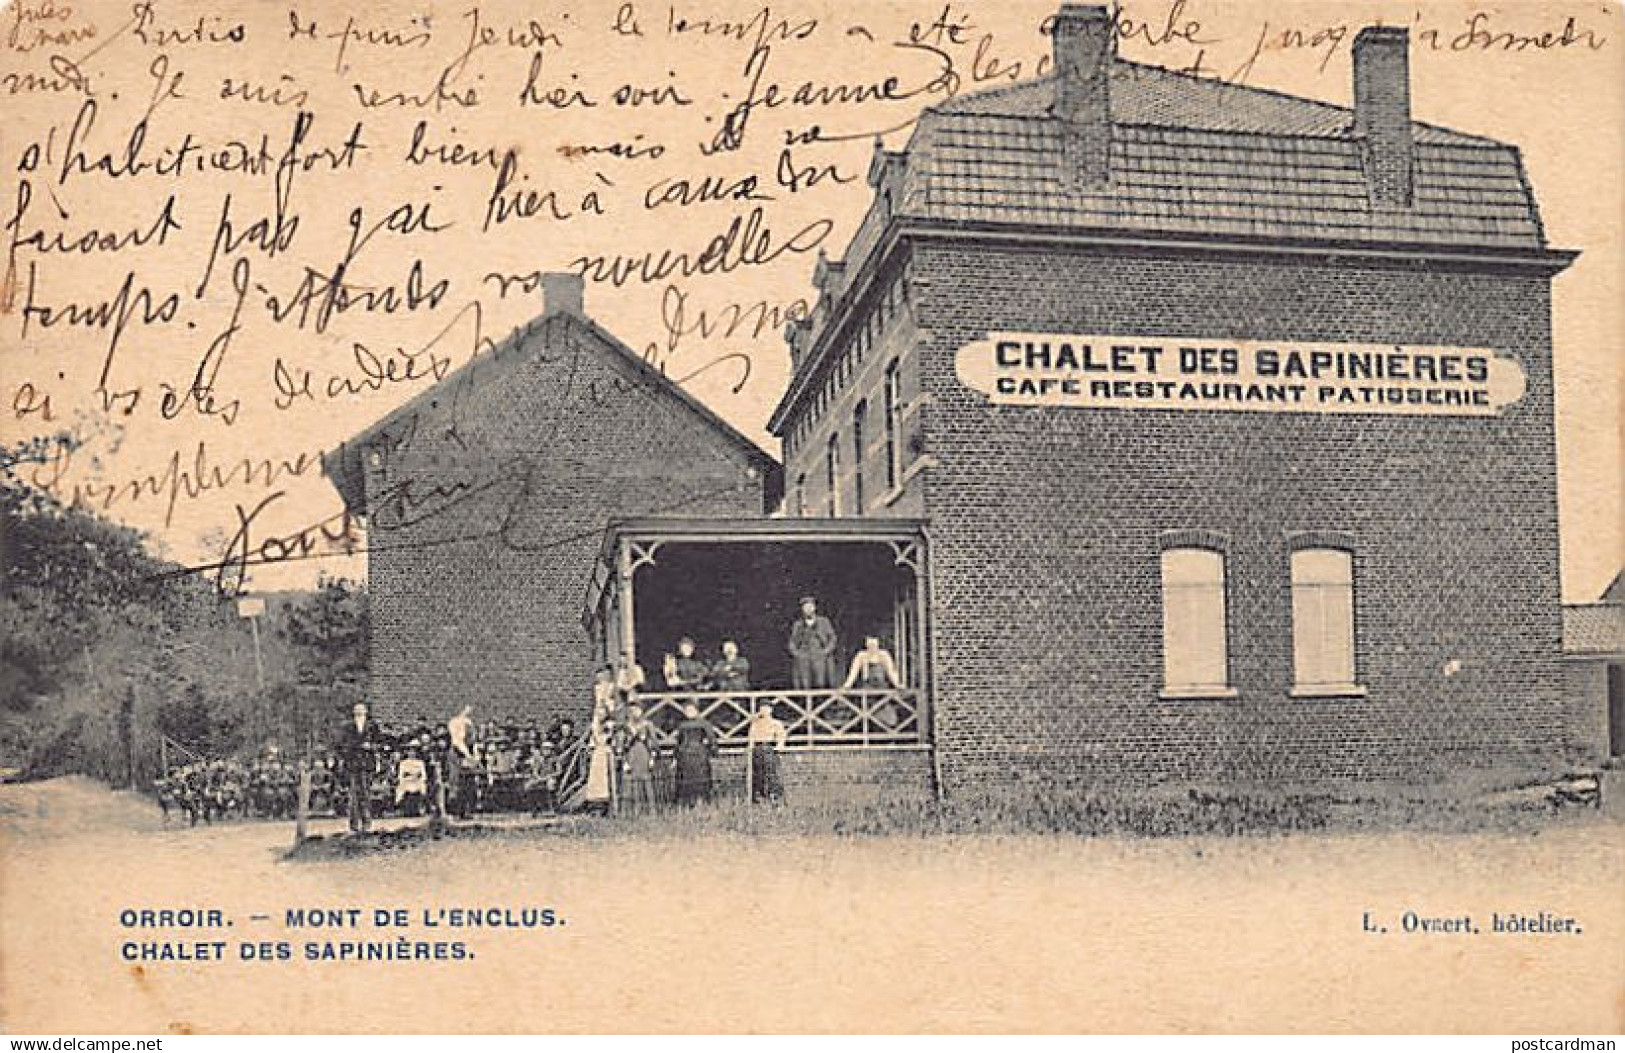 Jules
depuis Jeudi le temps a été superbe jusqu'à Samedi
midi. Je suis rentré hier soir. Jeanne & les enfants
s'habituent fort bien, mais il ne
faisait pas gai hier à cause du
temps. J'attends vos nouvelles
si vs êtes décidées
Jules
Compliments
CHALET DES SAPINIÈRES
CAFÉ RESTAURANT PATISSERIE
ORROIR. — MONT DE L'ENCLUS.
CHALET DES SAPINIÈRES.
L. Ovaert, hôtelier.
https://www.delcampe.net
postcardman